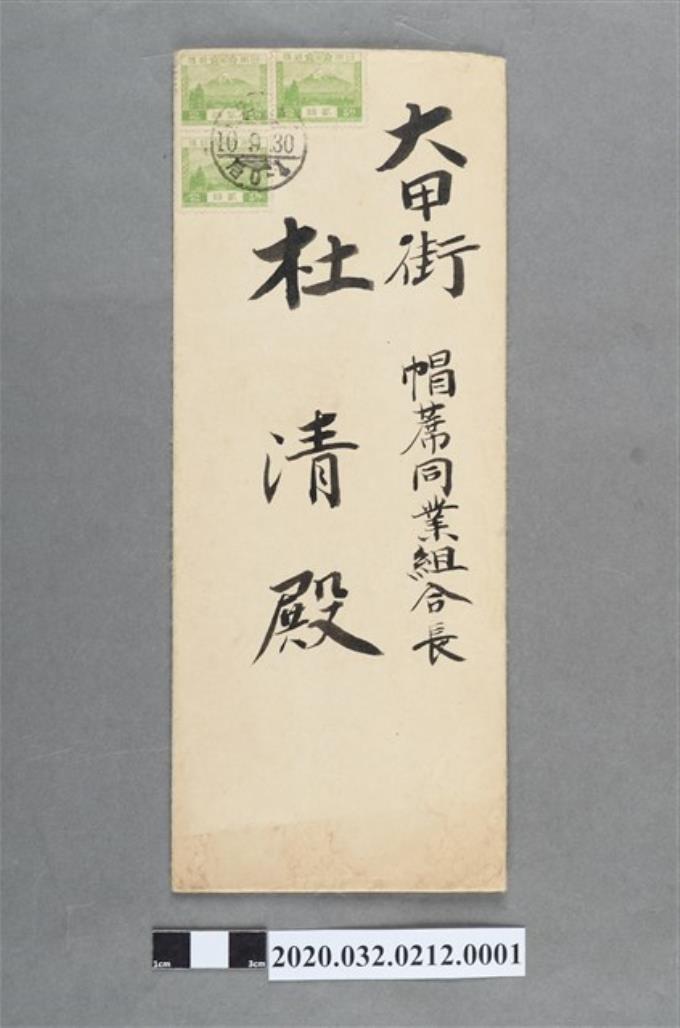 大甲街
帽蓆同業組合長
杜清殿
10.9.30
后0-1
1cm
3cm
2020.032.0212.0001